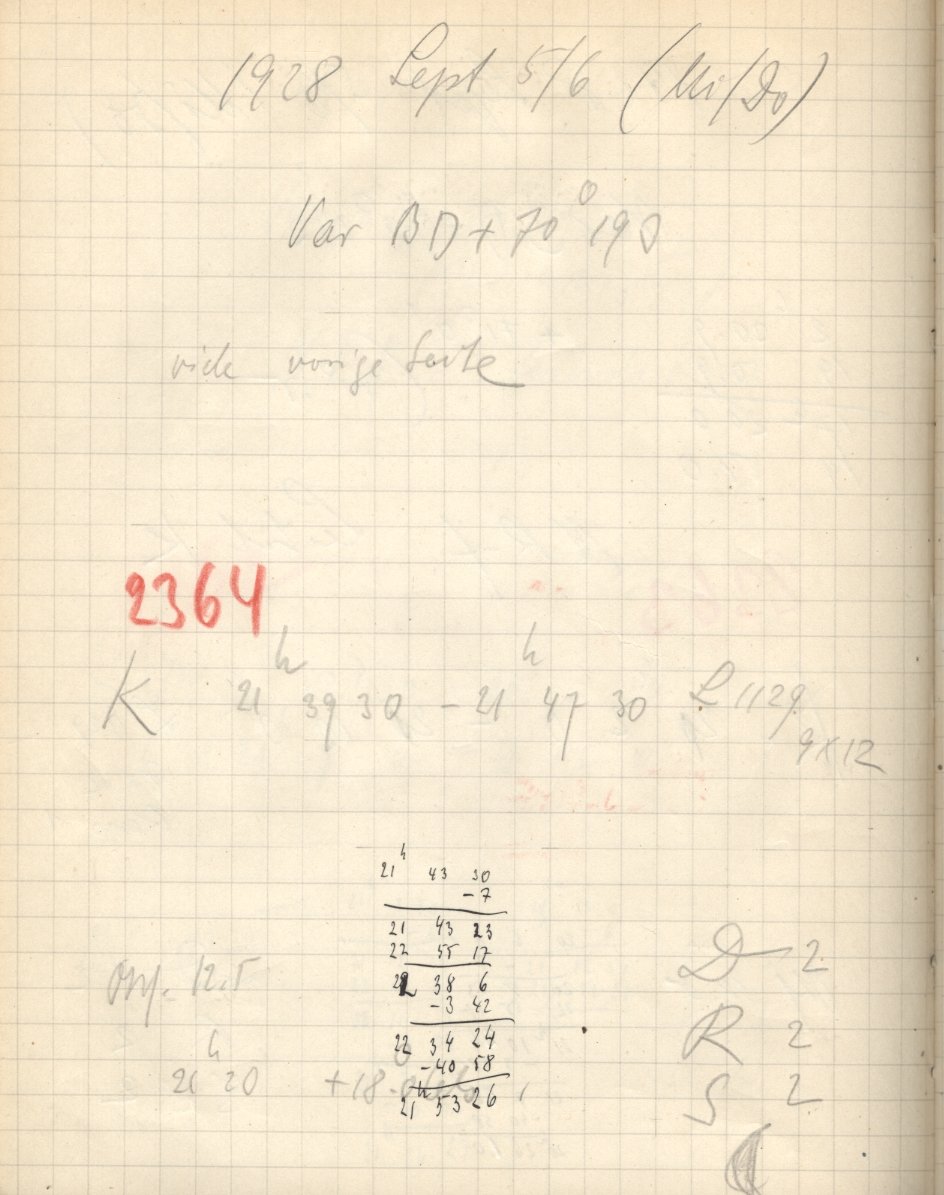 1928 Sept 5/6 (Mi/Do)
Var BD + 70° 198
vide vorige Seite
2364
K 21h 39 30 - 21h 47 30 L 1129
9x12
21h 43 30
- 7
21 43 23
22 55 17
22 38 6
-3 42
22 34 24
-40 58
21h 53 26
12.5
21h 20 +18
D 2
R 2
S 2